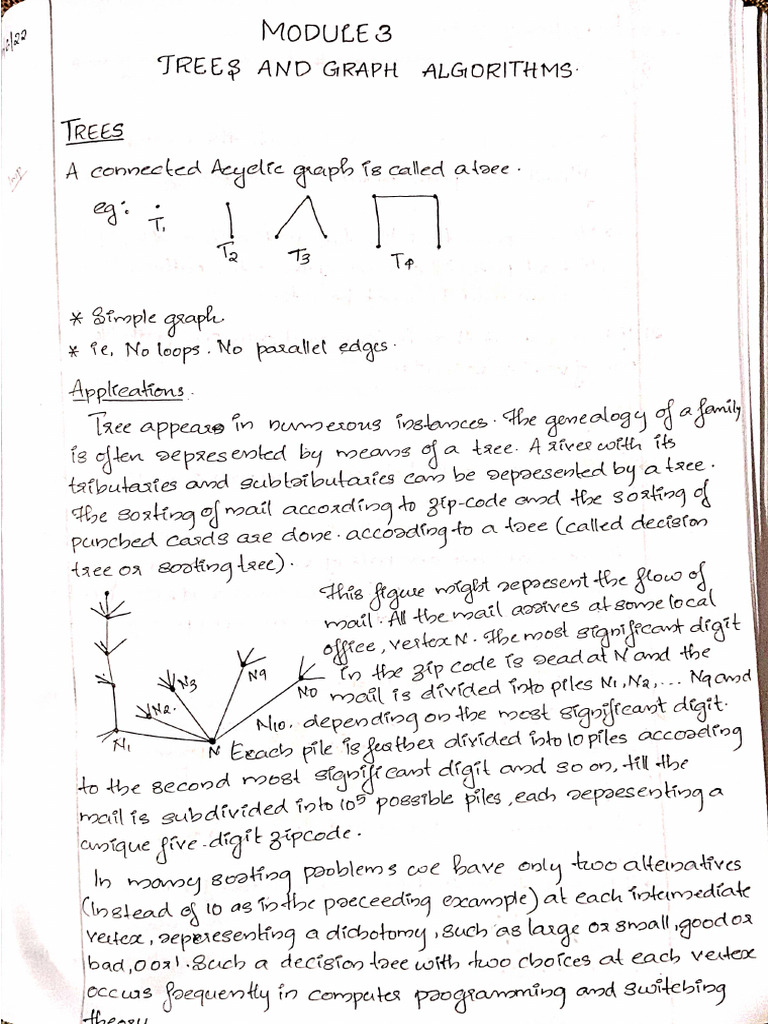 MODULE 3
TREES AND GRAPH ALGORITHMS.
TREES
A connected Acyclic graph is called a tree.
eg: T1 T2 T3 T4
* Simple graph
* ie, No loops. No parallel edges.
Applications.
Tree appears in numerous instances. The genealogy of a family
is often represented by means of a tree. A river with its
tributaries and subtributaries can be represented by a tree.
The sorting of mail according to zip-code and the sorting of
punched cards are done. according to a tree (called decision
tree or sorting tree).
This figure might represent the flow of
mail. All the mail arrives at some local
office, vertex N. The most significant digit
in the zip code is read at N and the
mail is divided into piles N1, N2, ... N9 and
N10. depending on the most significant digit.
N1 N2. N3 N9 N0 N
Each pile is further divided into 10 piles according
to the second most significant digit and so on, till the
mail is subdivided into 10⁵ possible piles, each representing a
unique five-digit zipcode.
In many sorting problems we have only two alternatives
(instead of 10 as in the preceeding example) at each intermediate
vertex, representing a dichotomy, such as large or small, good or
bad, 0 or 1. Such a decision tree with two choices at each vertex
occurs frequently in computer programming and switching
theory